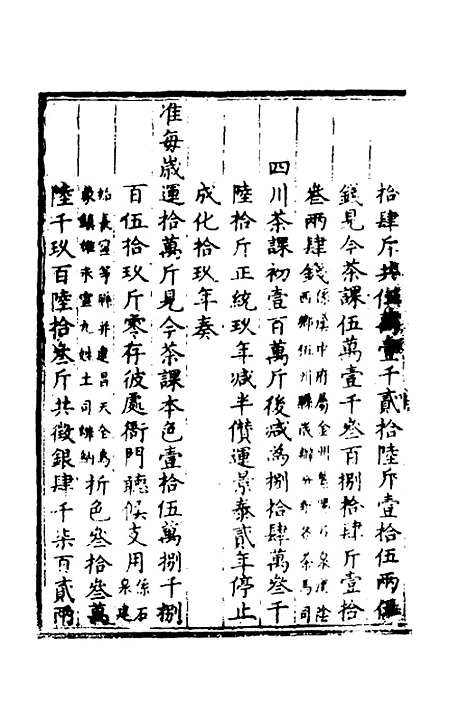 拾肆斤共壹千貳拾陸斤壹拾伍兩
錢見今茶課伍萬壹千叁百捌拾肆斤壹拾
叁兩肆錢係漢中府屬金州漢陰西鄉州縣歲辦茶馬司
四川茶課初壹百萬斤後減為捌拾肆萬叁千
陸拾斤正統玖年減半儹運景泰貳年停止
成化拾玖年奏
准每歲運拾萬斤見今茶課本色壹拾伍萬捌千捌
百伍拾玖斤零存彼處衙門聽候支用係石泉建
始長寧等縣并建昌天全烏蒙鎮雄永寧九姓土司辦納折色叁拾叁萬
陸千玖百陸拾叁斤共徵銀肆千柒百貳兩